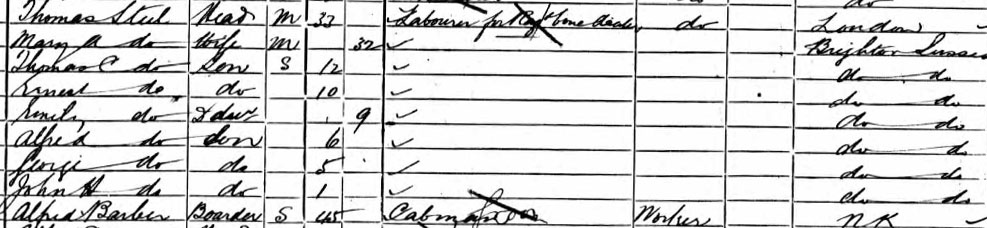 do
Thomas Steel Head M 33 Labourer for Rag & bone dealer do London
Mary A do Wife M 32 Brighton Sussex
Thomas C do Son S 12 do do
Ernest do do 10 do do
Emily do Daur 9 do do
Alfred do Son 6 do do
George do do 5 do do
John H do do 1 do do
Alfred Barber Boarder S 45 Worker NK